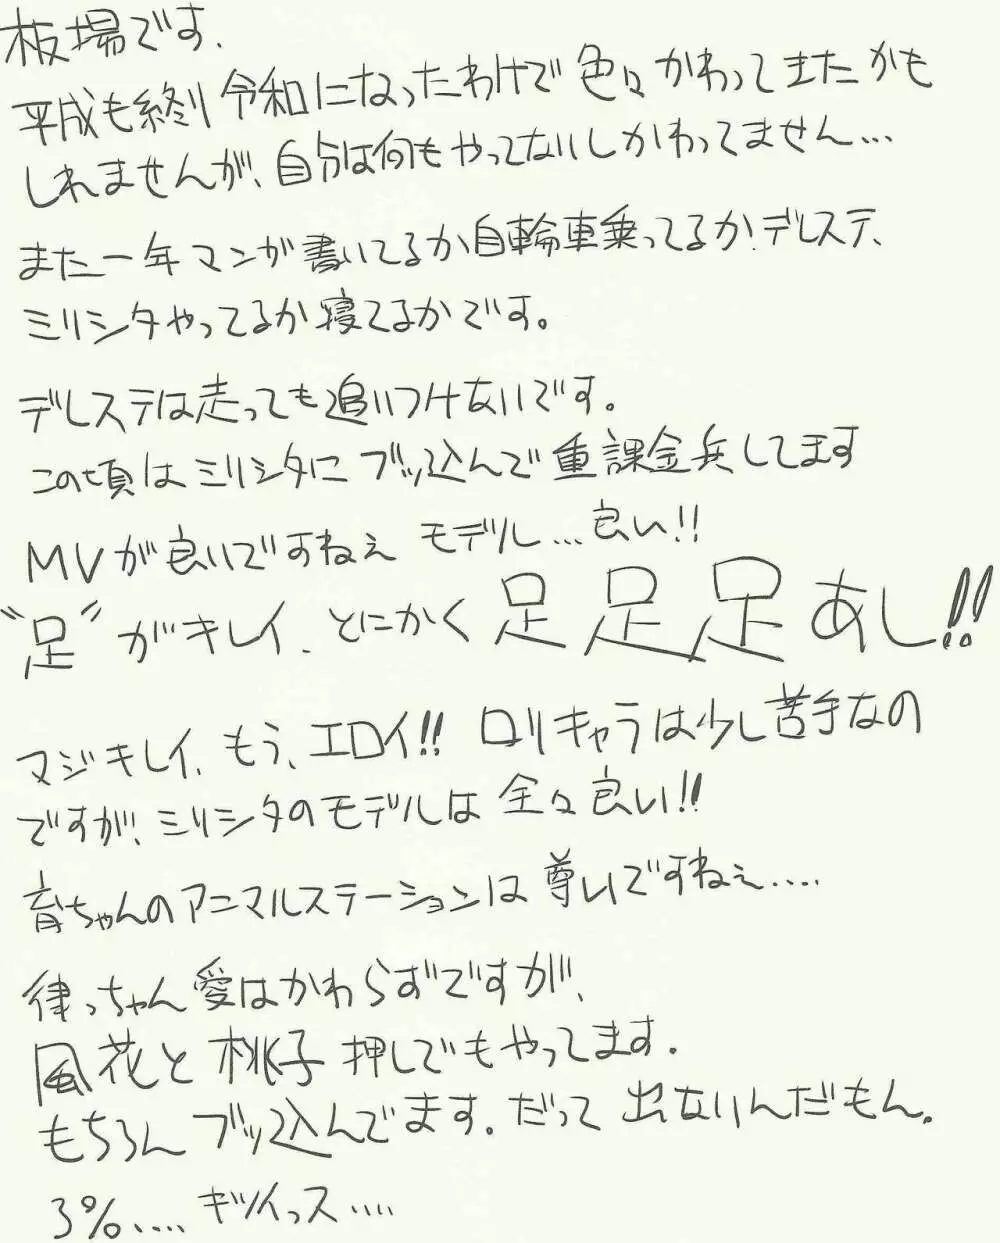 板場です.
平成も終り令和になったわけで色々かわってまたかも
しれませんが、自分は何もやってないしかわってません…
また一年マンが書いてるか自輪車乗ってるか、デレステ、
ミリシタやってるか寝てるかです。
デレステは走っても追いつけないです。
この頃はミリシタにブッ込んで重課金兵してます
MVが良いですねぇ モデル…良い!!
"足"がキレイ、とにかく足足足あし!!
マジキレイ、もう、エロイ!! ロリキャラは少し苦手なの
ですが、ミリシタのモデルは全々良い!!
育ちゃんのアニマルステーションは尊いですねぇ....
律っちゃん愛はかわらずですが、
風花と桃子押しでもやってます.
もちろんブッ込んでます。だって出ないんだもん。
3%.... キツイっス....